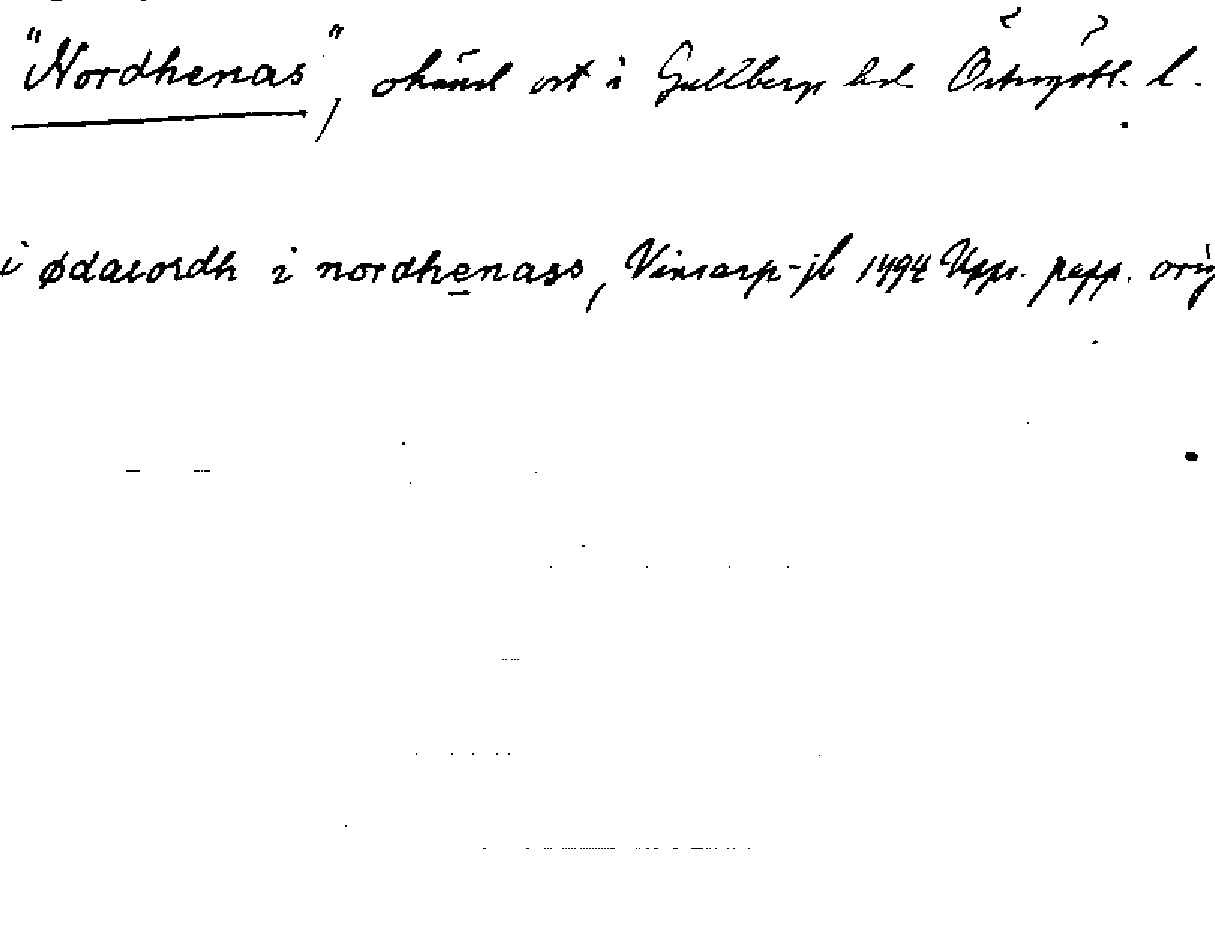 "Nordhenas", okänd ort i Gullberg hd Östergötl. l.
i ødaiordh i nordhenass, Vinsarp-jb 1494 Upps. papp. orig